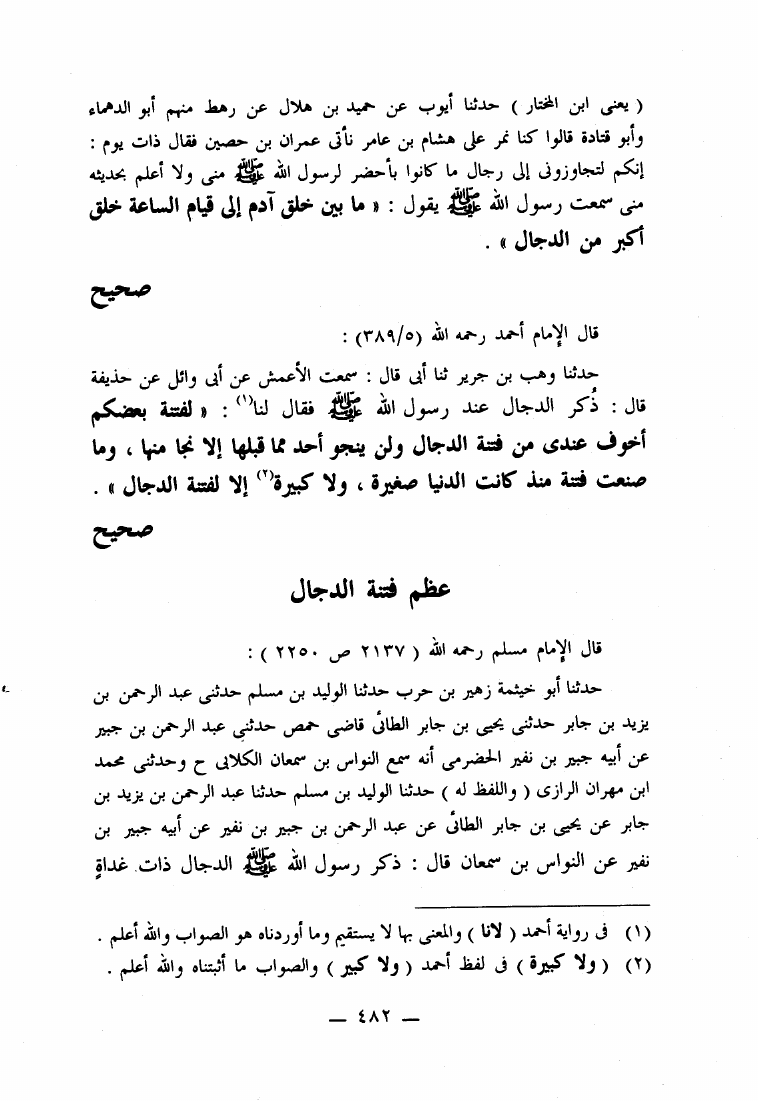 ( يعنى ابن المختار ) حدثنا أيوب عن حميد بن هلال عن رهط منهم أبو الدهماء
وأبو قتادة قالوا كنا نمر على هشام بن عامر نأتى عمران بن حصين فقال ذات يوم :
إنكم لتجاوزونى إلى رجال ما كانوا بأحضر لرسول الله ﷺ منى ولا أعلم بحديثه
منى سمعت رسول الله ﷺ يقول : « ما بين خلق آدم إلى قيام الساعة خلق
أكبر من الدجال » .
صحيح
قال الإمام أحمد رحمه الله (٣٨٩/٥) :
حدثنا وهب بن جرير ثنا أبى قال : سمعت الأعمش عن أبى وائل عن حذيفة
قال : ذُكر الدجال عند رسول الله ﷺ فقال لنا(١) : « لفتنة بعضكم
أخوف عندى من فتنة الدجال ولن ينجو أحد مما قبلها إلا نجا منها ، وما
صنعت فتنة منذ كانت الدنيا صغيرة ، ولا كبيرة(٢) إلا لفتنة الدجال » .
صحيح
عظم فتنة الدجال
قال الإمام مسلم رحمه الله ( ٢١٣٧ ص ٢٢٥٠ ) :
حدثنا أبو خيثمة زهير بن حرب حدثنا الوليد بن مسلم حدثنى عبد الرحمن بن
يزيد بن جابر حدثنى يحيى بن جابر الطائى قاضى حمص حدثنى عبد الرحمن بن جبير
عن أبيه جبير بن نفير الحضرمى أنه سمع النواس بن سمعان الكلابى ح وحدثنى محمد
ابن مهران الرازى ( واللفظ له ) حدثنا الوليد بن مسلم حدثنا عبد الرحمن بن يزيد بن
جابر عن يحيى بن جابر الطائى عن عبد الرحمن بن جبير بن نفير عن أبيه جبير بن
نفير عن النواس بن سمعان قال : ذكر رسول الله ﷺ الدجال ذات غداةٍ
(١) فى رواية أحمد ( لانا ) والمعنى بها لا يستقيم وما أوردناه هو الصواب والله أعلم .
(٢) ( ولا كبيرة ) فى لفظ أحمد ( ولا كبير ) والصواب ما أثبتناه والله أعلم .
— ٤٨٢ —